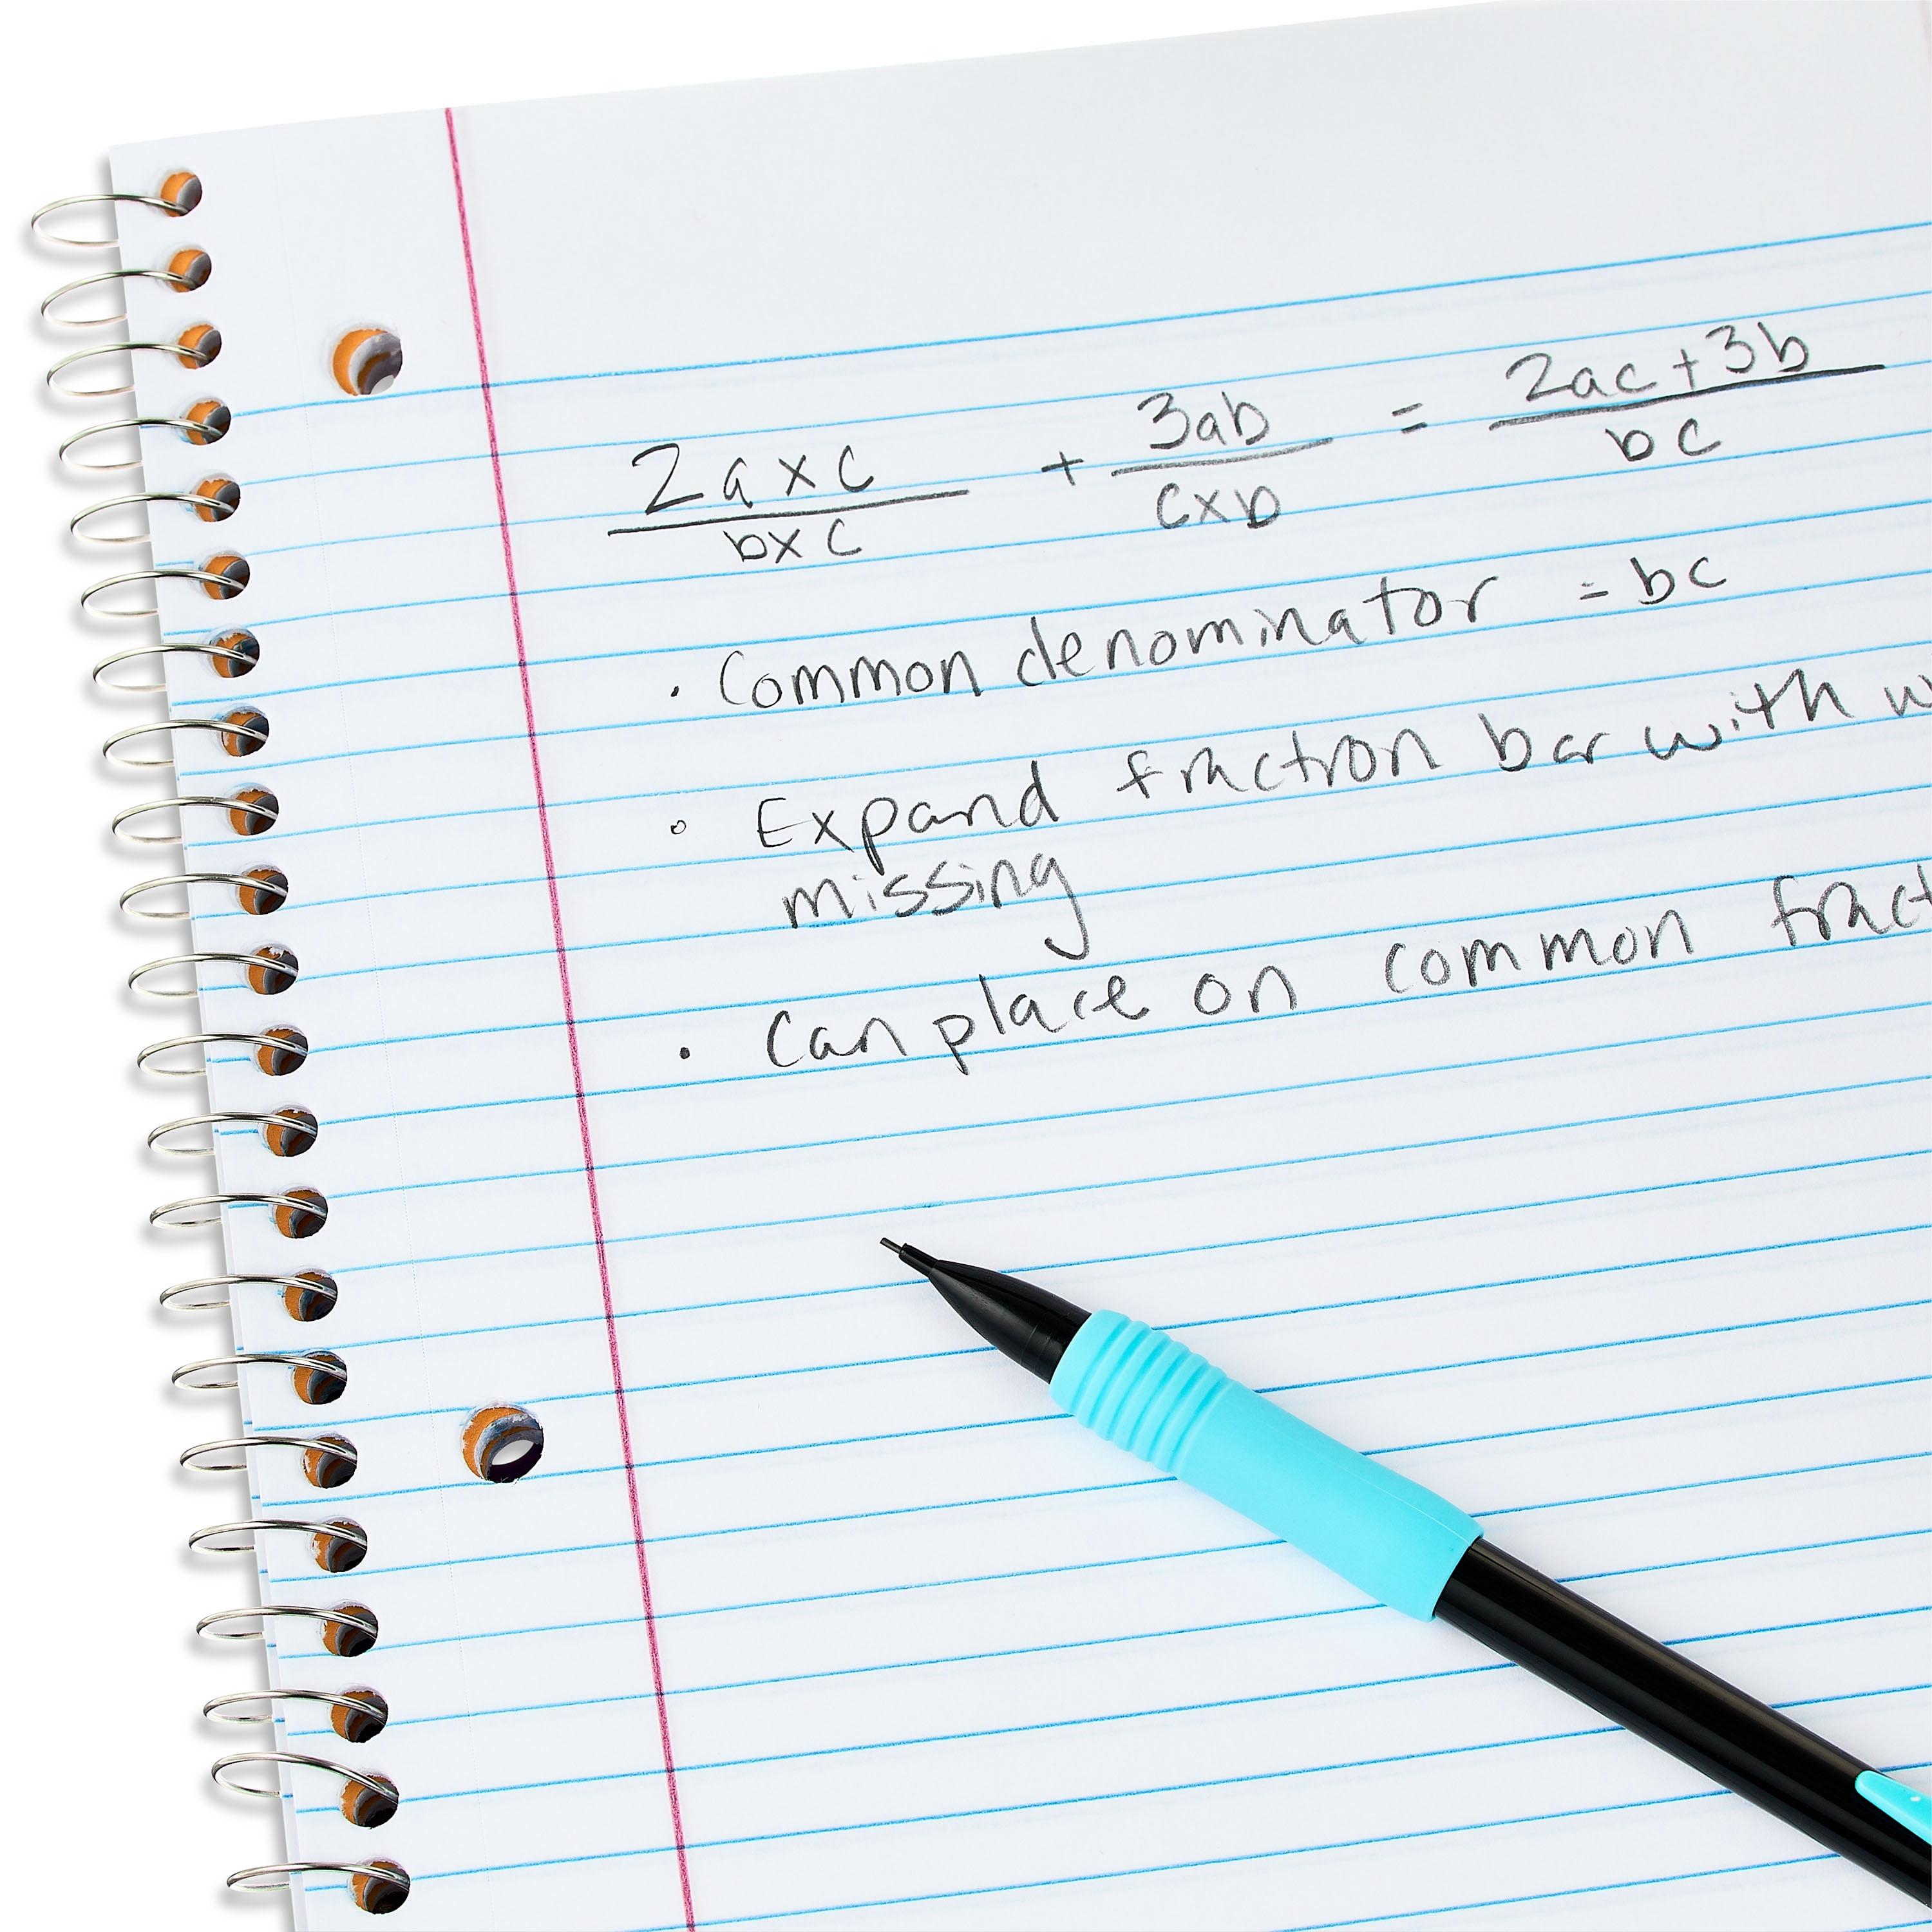 2a x c / b x c + 3ab / c x b = 2ac + 3b / bc
• Common denominator = bc
• Expand fraction bar with
missing
• Can place on common